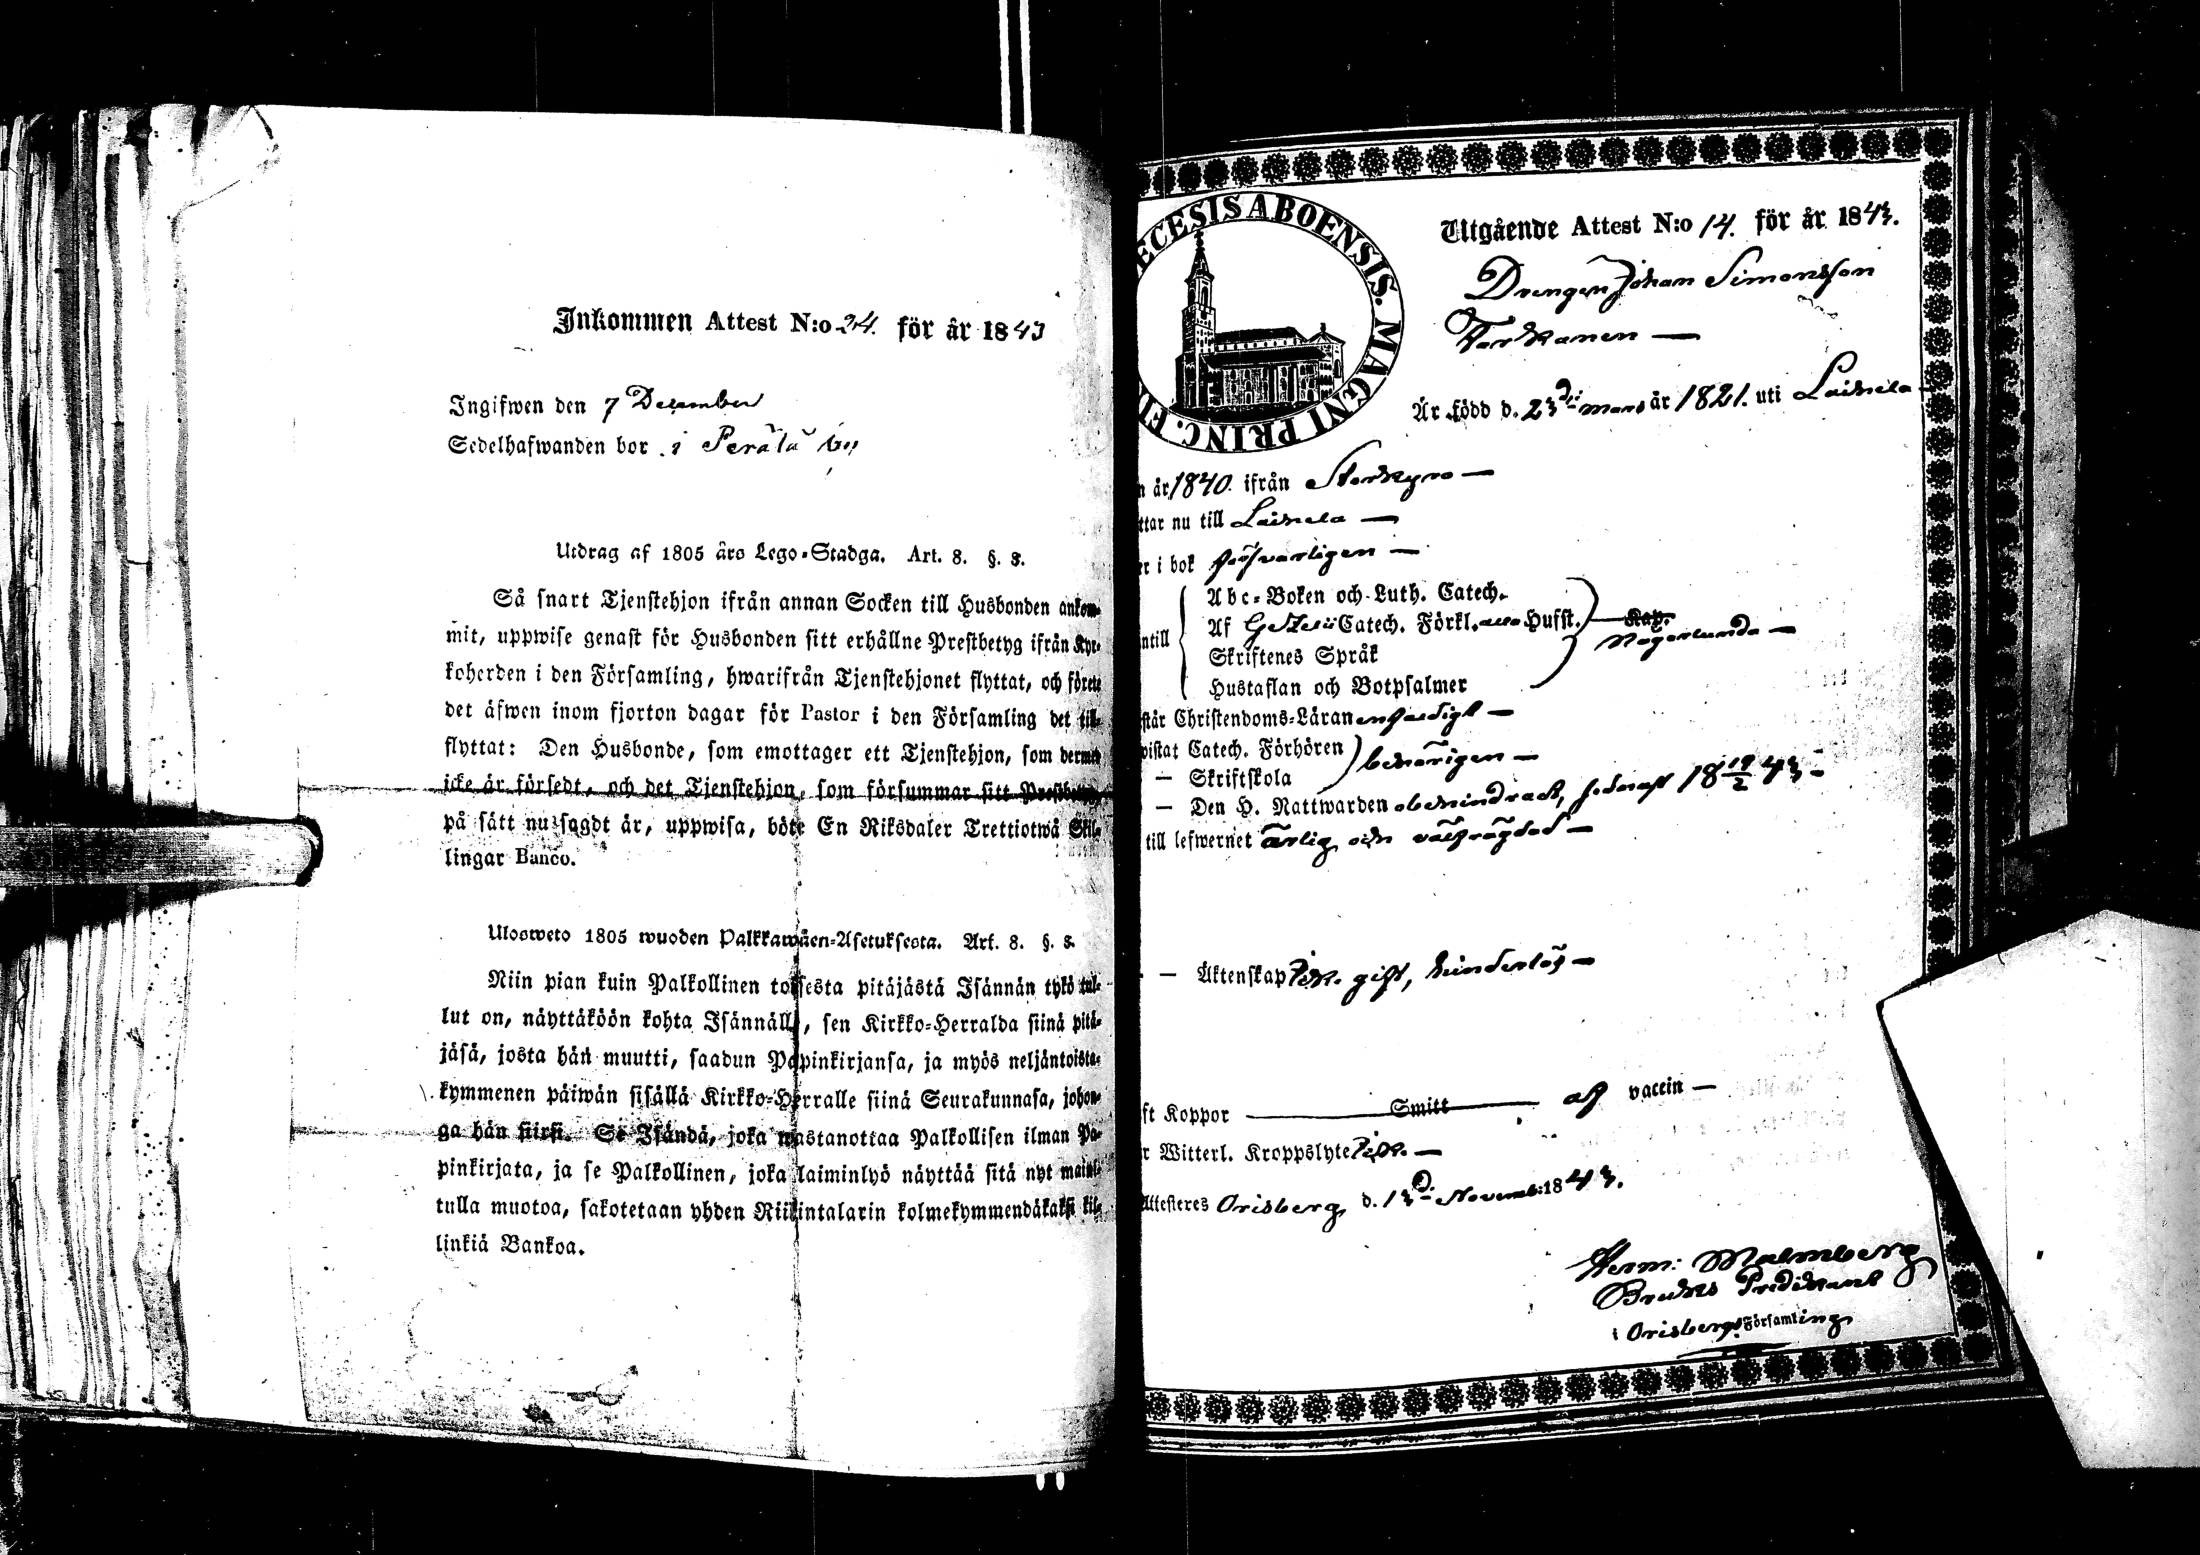 Inkommen Attest N:o 24. för år 1843
Ingifwen den 7 December
Sedelhafwanden bor i Perälä by
Utdrag af 1805 års Lego-Stadga. Art. 8. §. 3.
Så snart Tjenstehjon ifrån annan Socken till Husbonden ankom-
mit, uppwise genast för Husbonden sitt erhållne Prestbetyg ifrån Kyr-
koherden i den Församling, hwarifrån Tjenstehjonet flyttat, och förete
det äfwen inom fjorton dagar för Pastor i den Församling det till-
flyttat: Den Husbonde, som emottager ett Tjenstehjon, som dermed
icke är försedt, och det Tjenstehjon, som försummar sitt Prestbetyg
på sätt nu sagdt är, uppwisa, böte En Riksdaler Trettiotwå Skil-
lingar Banco.
Ulosweto 1805 wuoden Palkkawäen-Asetuksesta. Art. 8. §. 3.
Niin pian kuin Palkollinen toisesta pitäjästä Isännän tykö tul-
lut on, näyttäköön kohta Isännälle, sen Kirkko-Herralda siinä pitä-
jäsä, josta hän muutti, saadun Papinkirjansa, ja myös neljäntoista-
kymmenen päiwän sisällä Kirkko-Herralle siinä Seurakunnasa, johon-
ga hän siirsi. Se Isändä, joka wastanottaa Palkollisen ilman Pa-
pinkirjata, ja se Palkollinen, joka laiminlyö näyttää sitä nyt maini-
tulla muotoa, sakotetaan yhden Riikintalarin kolmekymmendäkaksi kil-
linkiä Bankoa.
ECESIS ABOENSIS. MAGNI PRINC. FI
Utgående Attest N:o 14. för år 1843.
Drengen Johan Simonsson
Är född d. 23 mars år 1821. uti Laihela
år 1840. ifrån Storkyro
ttar nu till Laihela
r i bok försvarligen
ntill
Abc-Boken och Luth. Catech.
Af Catech. Förkl. Hufst. Kap.
Skriftenes Språk
Hustaflan och Botpsalmer
Någorlunda
står Christendoms-Läran enfaldigt
wistat Catech. Förhören
— Skriftskola
behörigen
— Den H. Nattwarden obehindrad, sednast 18 19/2 43
till lefwernet ärlig och välfrägdad
— — Äktenskap icke gift, hinderlös
ft Koppor Smitt af vaccin
r Witterl. Kroppslyte icke
Attesteres Orisberg d. 13 Novemb: 1843.
Herm: Malmberg
Bruks Predikant
i Orisbergs Församling